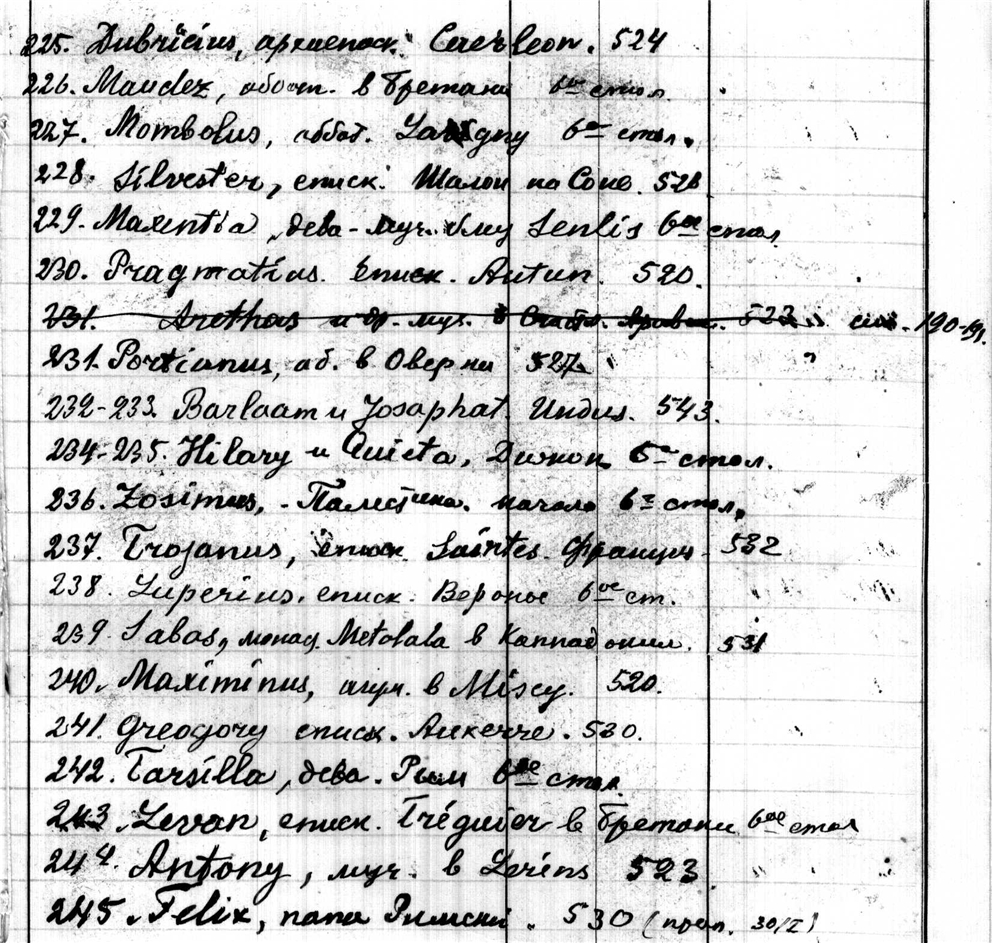 225. Dubricius, архиепоск. Caerleon. 524
226. Maudez, аббат. в Бретани 6ое стол.
227. Mombolus, аббат. 6ое стол.
228. Silvester, еписк. Шалон на Соне. 526
229. Maxentia, дева-муч. Senlis 6ое стол
230. Pragmatius. Еписк. Autun. 520.
231. Arethas и др. муч. в Счастл. Аравии. 523 190-191.
231. Portianus, аб. в Оверни 527
232-233. Barlaam и Josaphat. Индия. 543.
234-235. Hilary и Quieta, Дижон 6ое стол.
236. Zosimus, - Палестина. начало 6ое стол.
237. Trojanus, еписк. Saintes. Франция. 532
238. Luperius, еписк. Вероное 6ое ст.
239. Sabas, монах. Metalala в Каппадокии. 531
240. Maximinus, игум. в Miscy. 520.
241. Greogory еписк. Auxerre. 530.
242. Tarsilla, дева. Рим 6ое стол.
243. Levan, еписк. Tréguier в Бретани 6ое стол
244. Antony, муч. в Lerins 523.
245. Felix, папа Римский. 530 (прап. 30/I)